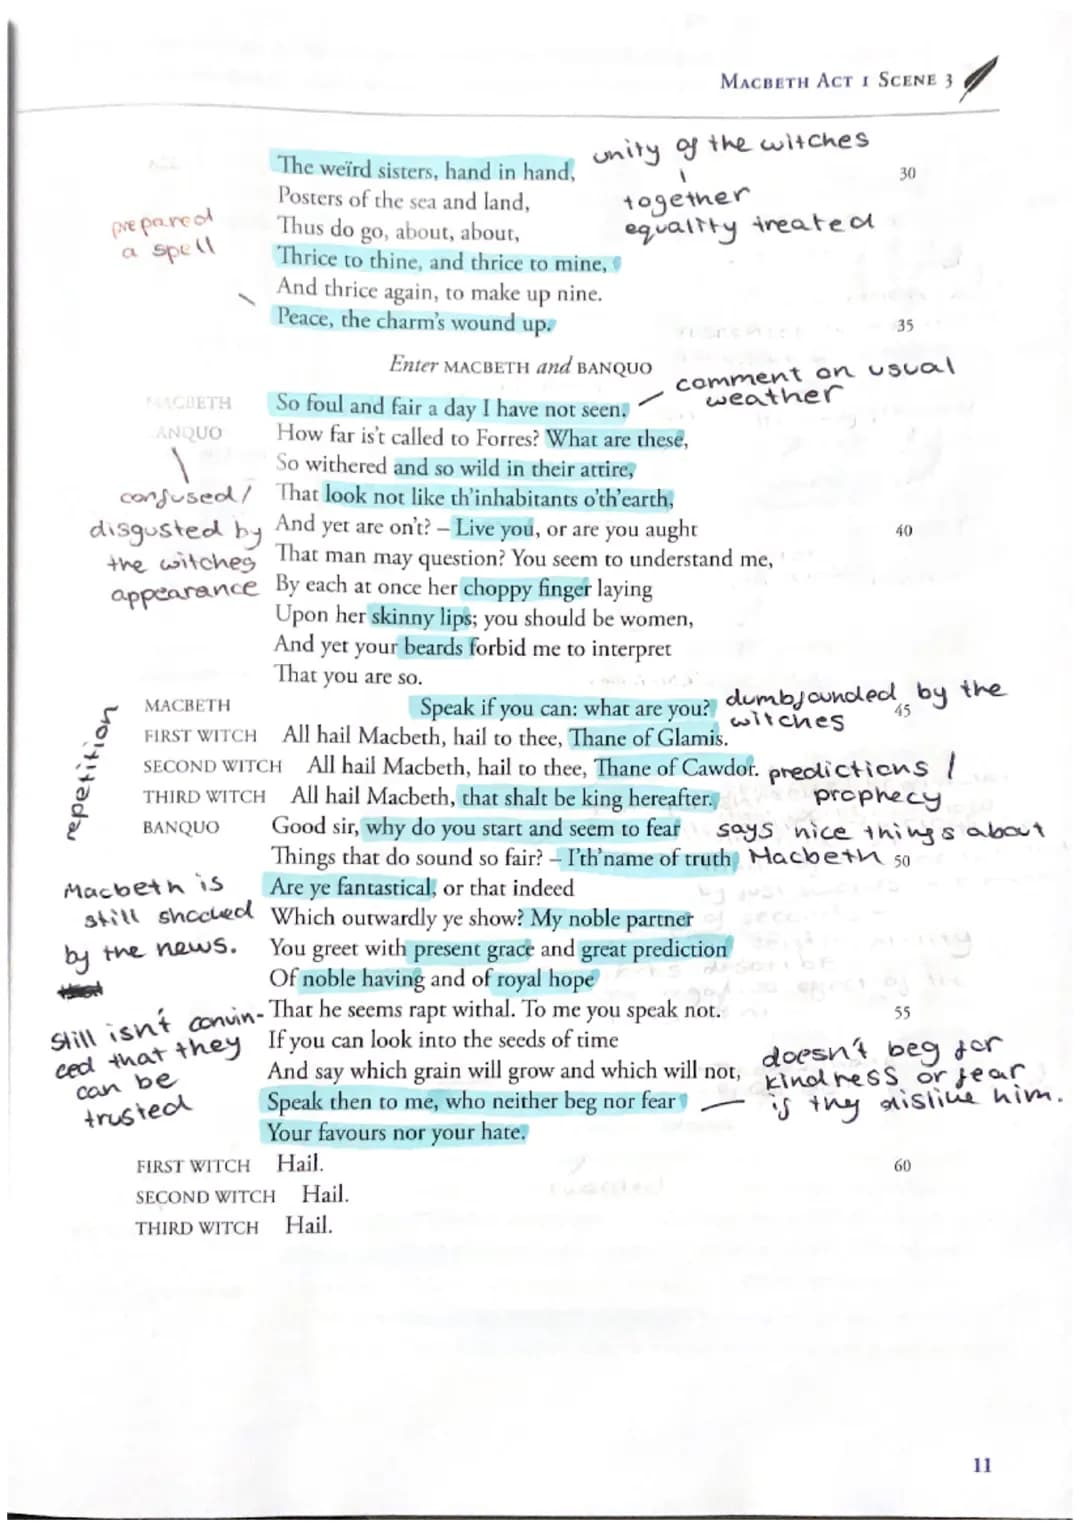 MACBETH ACT 1 SCENE 3
unity of the witches
The weïrd sisters, hand in hand,
30
together
Posters of the sea and land,
equality treated
prepared
a spell
Thus do go, about, about,
Thrice to thine, and thrice to mine,
And thrice again, to make up nine.
Peace, the charm's wound up.
35
Enter MACBETH and BANQUO
comment on usual
weather
MACBETH So foul and fair a day I have not seen.
BANQUO How far is't called to Forres? What are these,
So withered and so wild in their attire,
confused/
disgusted by
the witches
appearance
That look not like th'inhabitants o'th'earth,
And yet are on't? – Live you, or are you aught
40
That man may question? You seem to understand me,
By each at once her choppy finger laying
Upon her skinny lips; you should be women,
And yet your beards forbid me to interpret
That you are so.
MACBETH Speak if you can: what are you?
45
dumbfounded by the
witches
repetition
FIRST WITCH All hail Macbeth, hail to thee, Thane of Glamis.
SECOND WITCH All hail Macbeth, hail to thee, Thane of Cawdor.
predictions /
prophecy
THIRD WITCH All hail Macbeth, that shalt be king hereafter.
BANQUO Good sir, why do you start and seem to fear
says nice things about
Macbeth
Things that do sound so fair? – I'th'name of truth
50
Macbeth is
still shocked
by the news.
Are ye fantastical, or that indeed
Which outwardly ye show? My noble partner
You greet with present grace and great prediction
Of noble having and of royal hope
That he seems rapt withal. To me you speak not.
55
Still isn't convin-
ced that they
can be
trusted
If you can look into the seeds of time
And say which grain will grow and which will not,
doesn't beg for
kindness or fear
if they dislike him.
Speak then to me, who neither beg nor fear
Your favours nor your hate.
FIRST WITCH Hail.
60
SECOND WITCH Hail.
THIRD WITCH Hail.
11